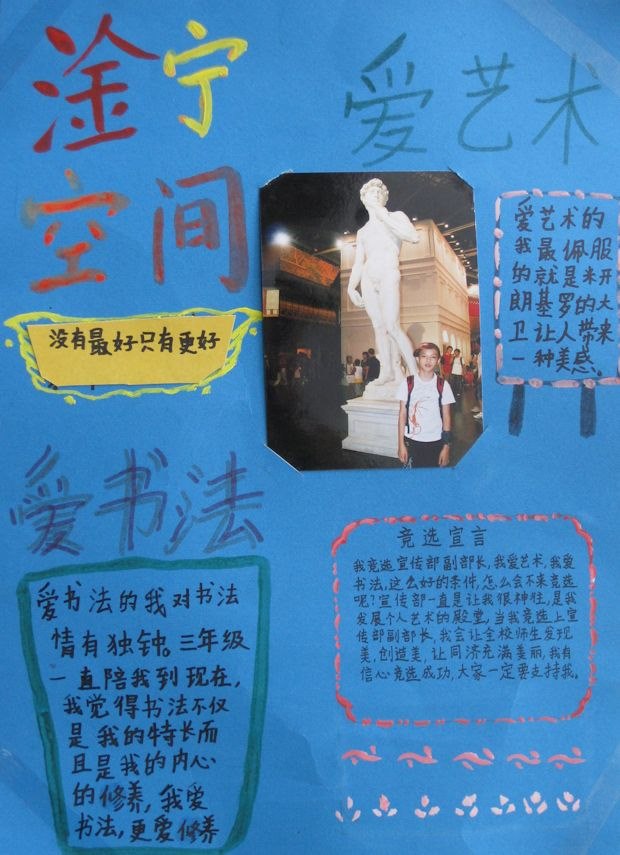 淦宁
空间
没有最好只有更好
爱艺术
爱艺术的
我最佩服
的就是米开
朗基罗的大
卫让人带来
一种美感。
爱书法
爱书法的我对书法
情有独钟。三年级
一直陪我到现在,
我觉得书法不仅
是我的特长而
且是我的内心
的修养,我爱
书法,更爱修养
竞选宣言
我竞选宣传部副部长,我爱艺术,我爱
书法,这么好的条件,怎么会不来竞选
呢?宣传部一直是让我很神往,是我
发展个人艺术的殿堂,当我竞选上宣
传部副部长,我会让全校师生发现
美,创造美,让同济充满美丽,我有
信心竞选成功,大家一定要支持我。